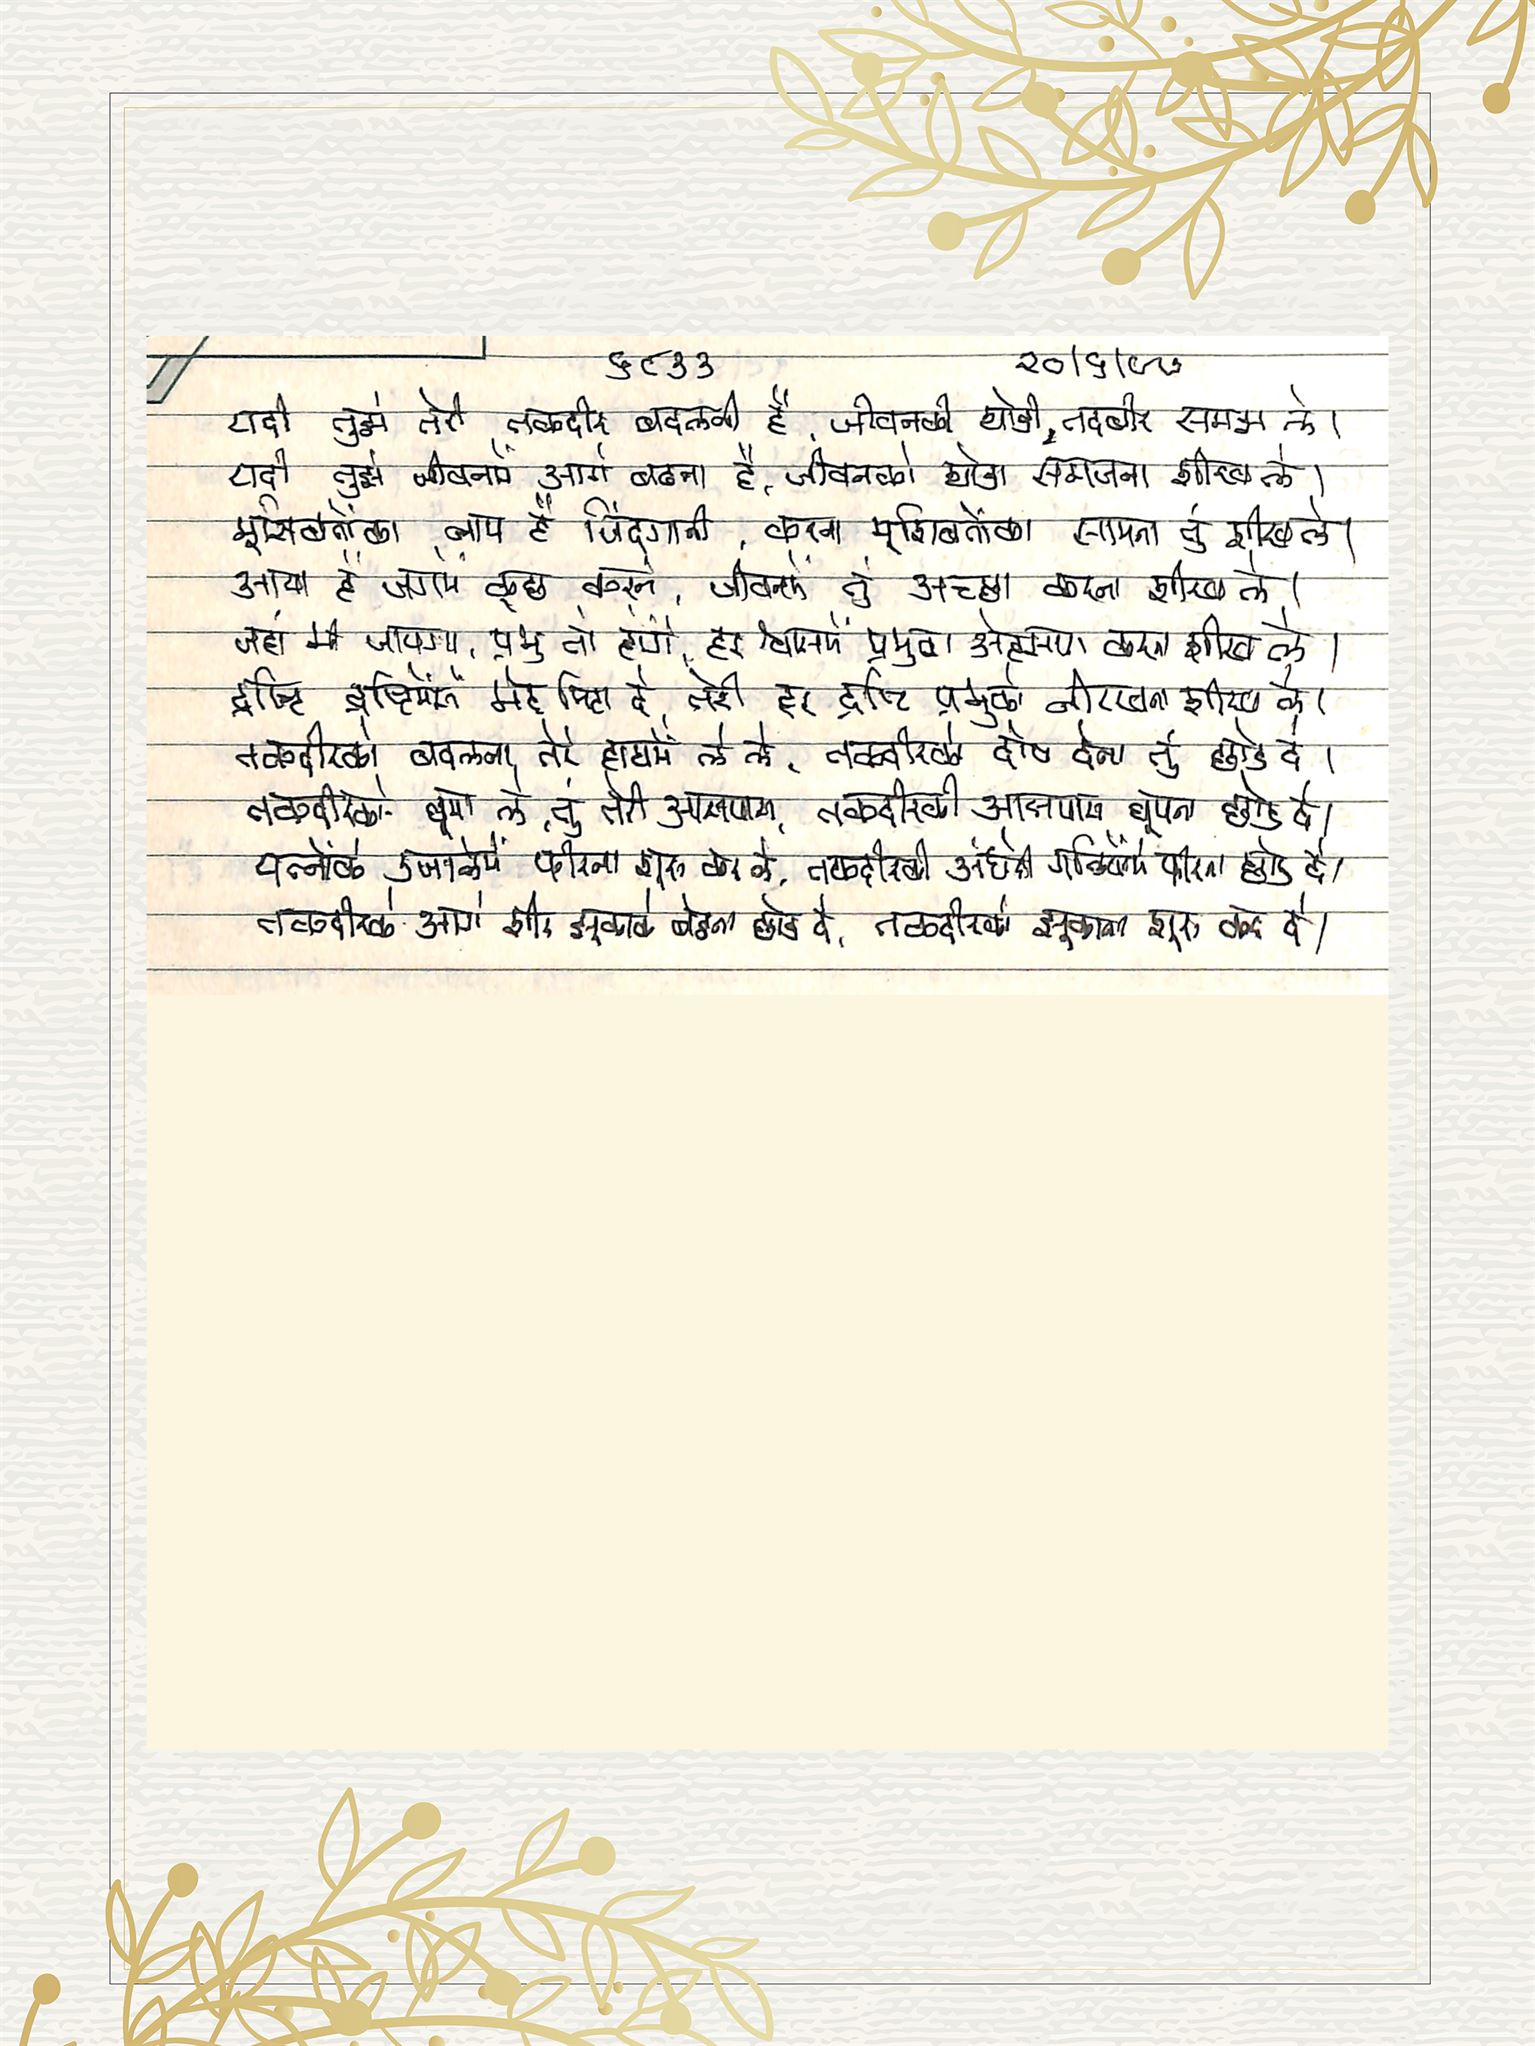 ५९३३ २०/६/९७
यदी तुझे तेरी तकदीर बदलनी है, जीवनकी थोडी तदबीर समझ ले।
यदी तुझे जीवनमें आगे बढना है, जीवनको थोडा समजना शीख ले।
मूसिबतोंका नाम है जिंदगानी, करना मूशिबतोंका सामना तुं शीख ले।
आया है जगमें कूछ करने, जीवनमें तुं अच्छा करना शीख ले।
जहां भी जाएगा, प्रभु तो होंगे, हर श्वासमें प्रभुका अेहसास करना शीख ले।
द्रष्टि द्रष्टिमेंसे भेद मिटा दे, तेरी हर द्रष्टि प्रभुको नीरखना शीख ले।
तकदीरको बदलना, तेरे हाथमें ले ले, तकदीरको दोष देना तुं छोड दे।
तकदीरको घूमा ले, तुं तेरी आसपास, तकदीरकी आसपास घूमना छोड दे।
यत्नोंके उजालेमें फीरना शूरू कर दे, तकदीरकी अंधेरी गलियोंमें फीरना छोड दे।
तकदीरके आगे शीर झूकाके बेठना छोड दे, तकदीरको झूकाना शूरू कर दे।